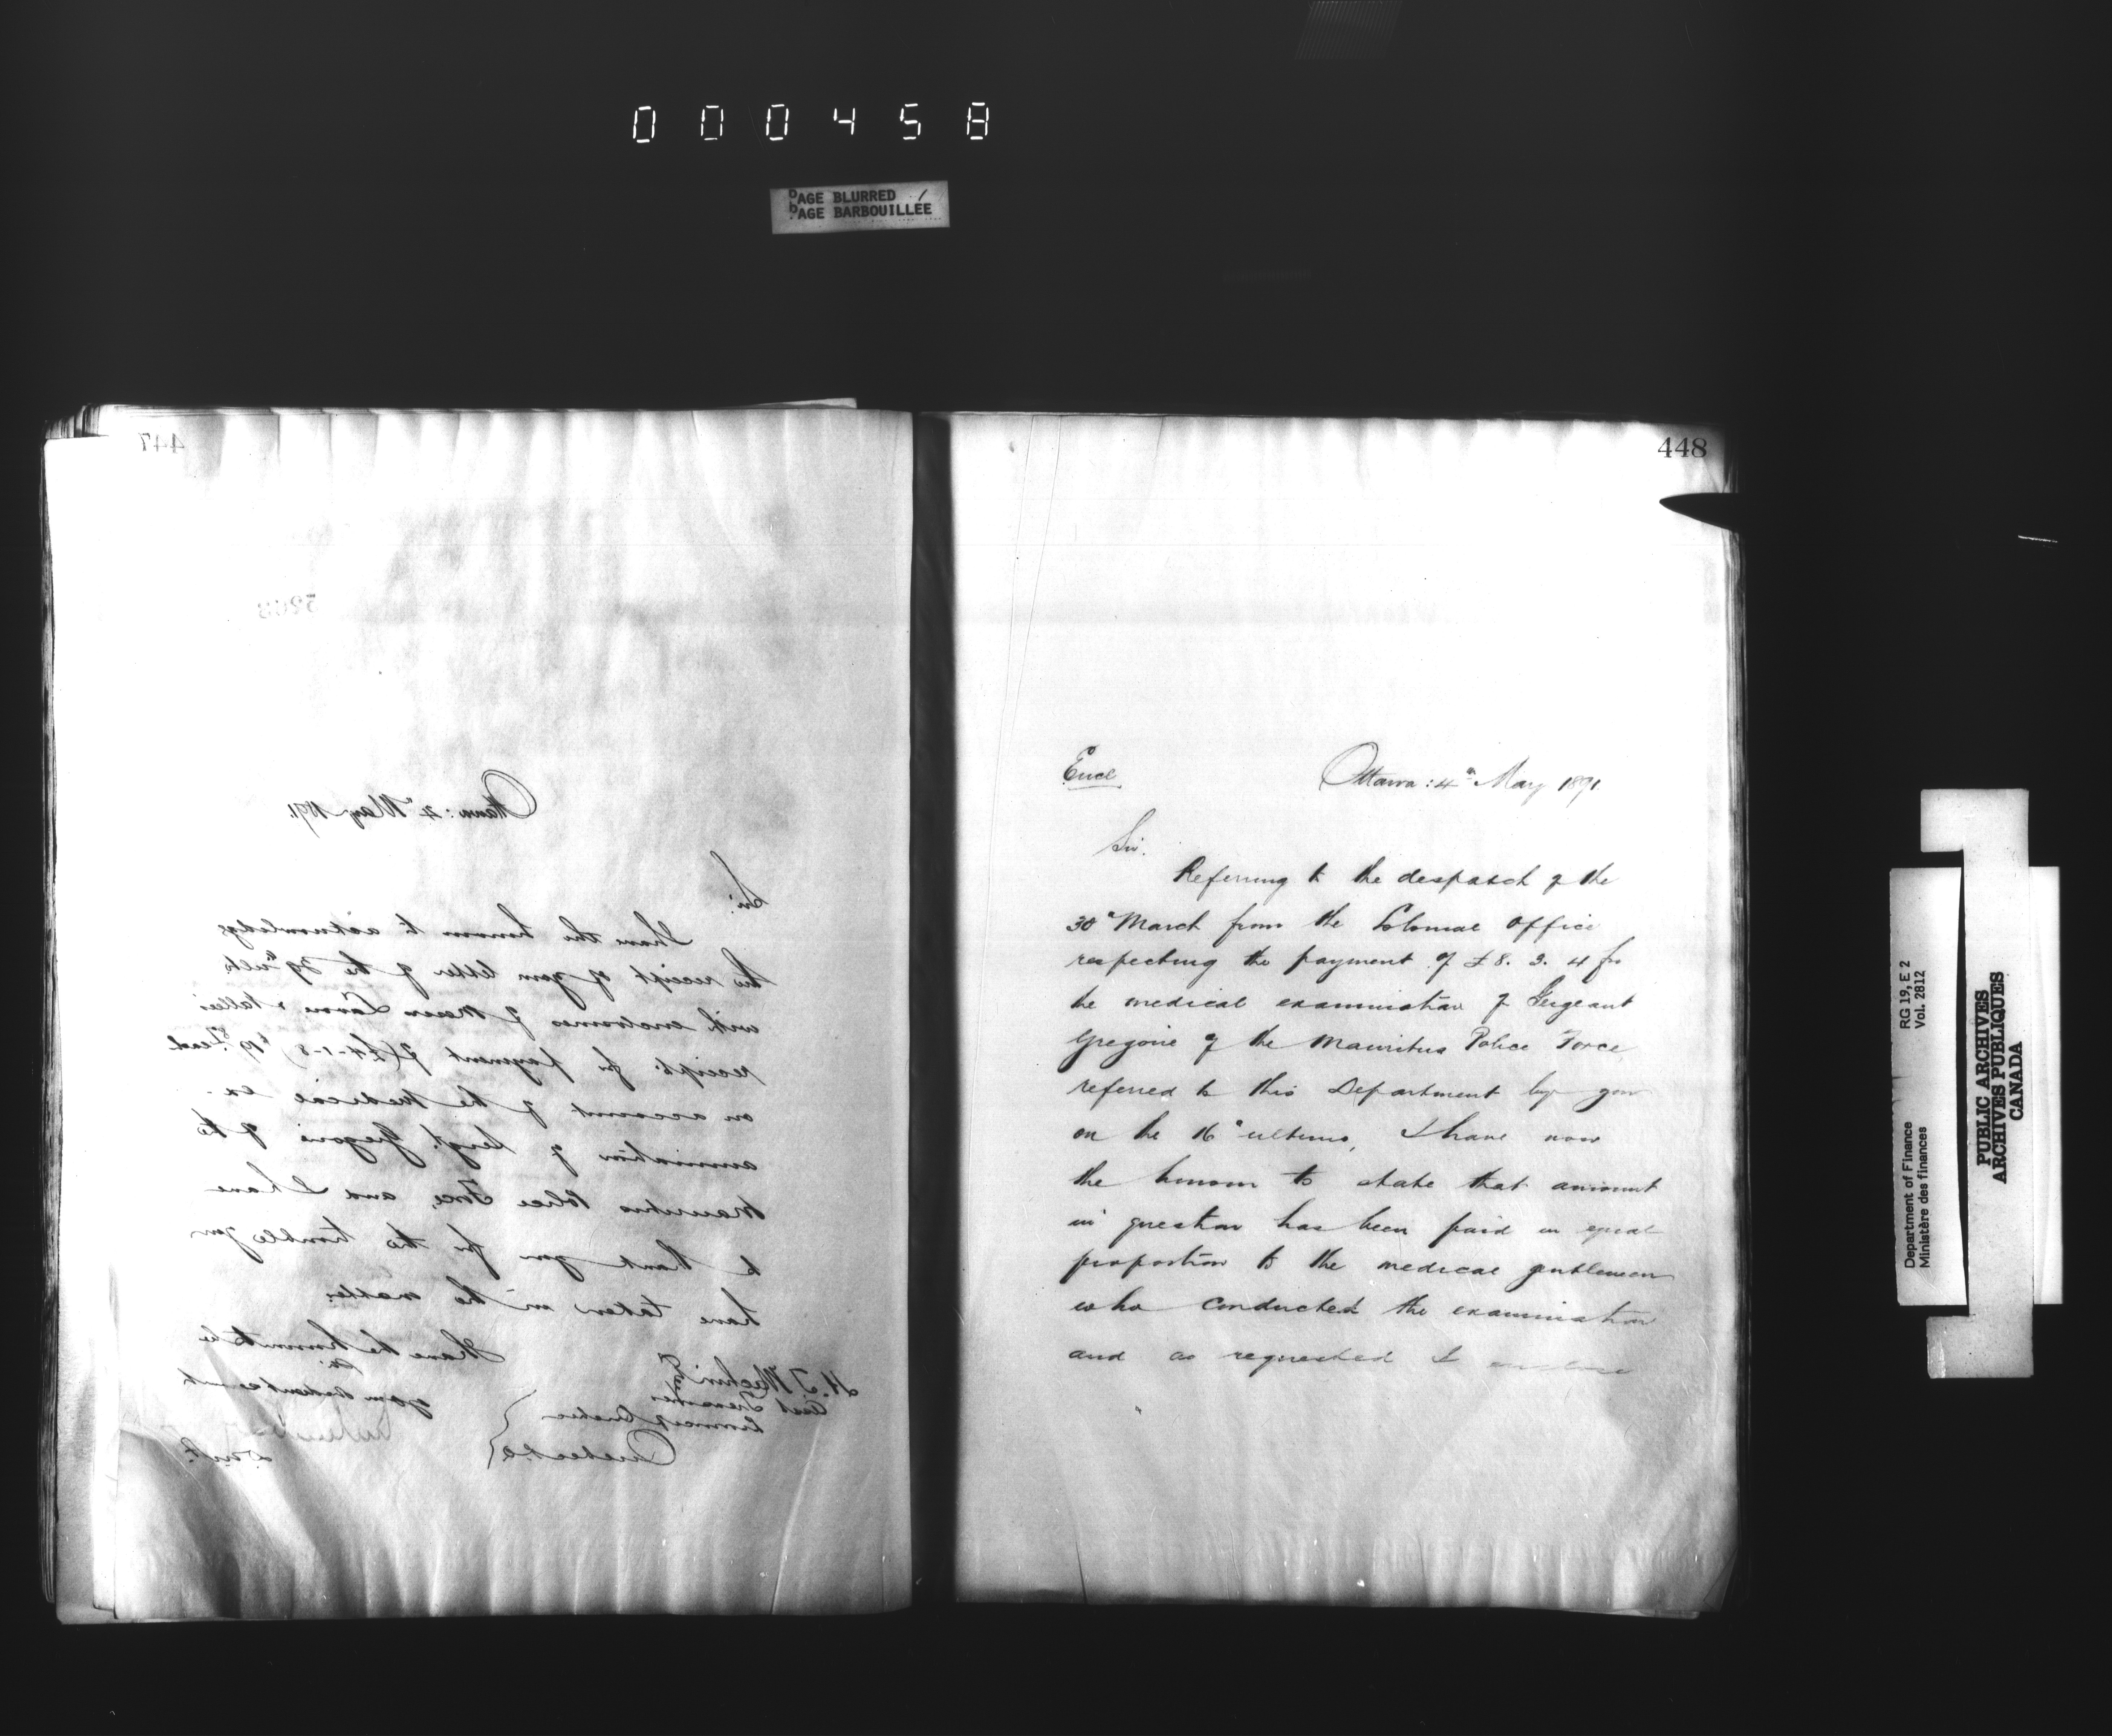 000458
PAGE BLURRED
PAGE BARBOUILLÉE
447
Ottawa: 4th May 1891.
Sir.
I have the honour to acknowledge
the receipt of your letter of the 29th ulto
with enclosures of Messrs & Vallée
receipts for payment of (£4-1-8) $19.87 each
on account of the medical ex-
amination of Sergt. Gregoire of the
Mauritius Police Force, and I have
to thank you for the trouble you
have taken in the matter.
I have the honour to be
Sir
your obedient servant
H. T. Machin Esq
Asst Treasurer
Province of Quebec
Quebec P.Q.
D.M.F.
448
Encl
Ottawa: 4th May 1891
Sir.
Referring to the despatch of the
30th March from the Colonial Office
respecting the payment of £8. 3. 4 for
the medical examination of Sergeant
Gregoire of the Mauritius Police Force
referred to this Department by you
on the 16th ultimo, I have now
the honour to state that amount
in question has been paid in equal
proportion to the medical gentlemen
who conducted the examination
and as requested I enclose
Department of Finance
Ministère des finances
RG 19, E 2
Vol. 2812
PUBLIC ARCHIVES
ARCHIVES PUBLIQUES
CANADA